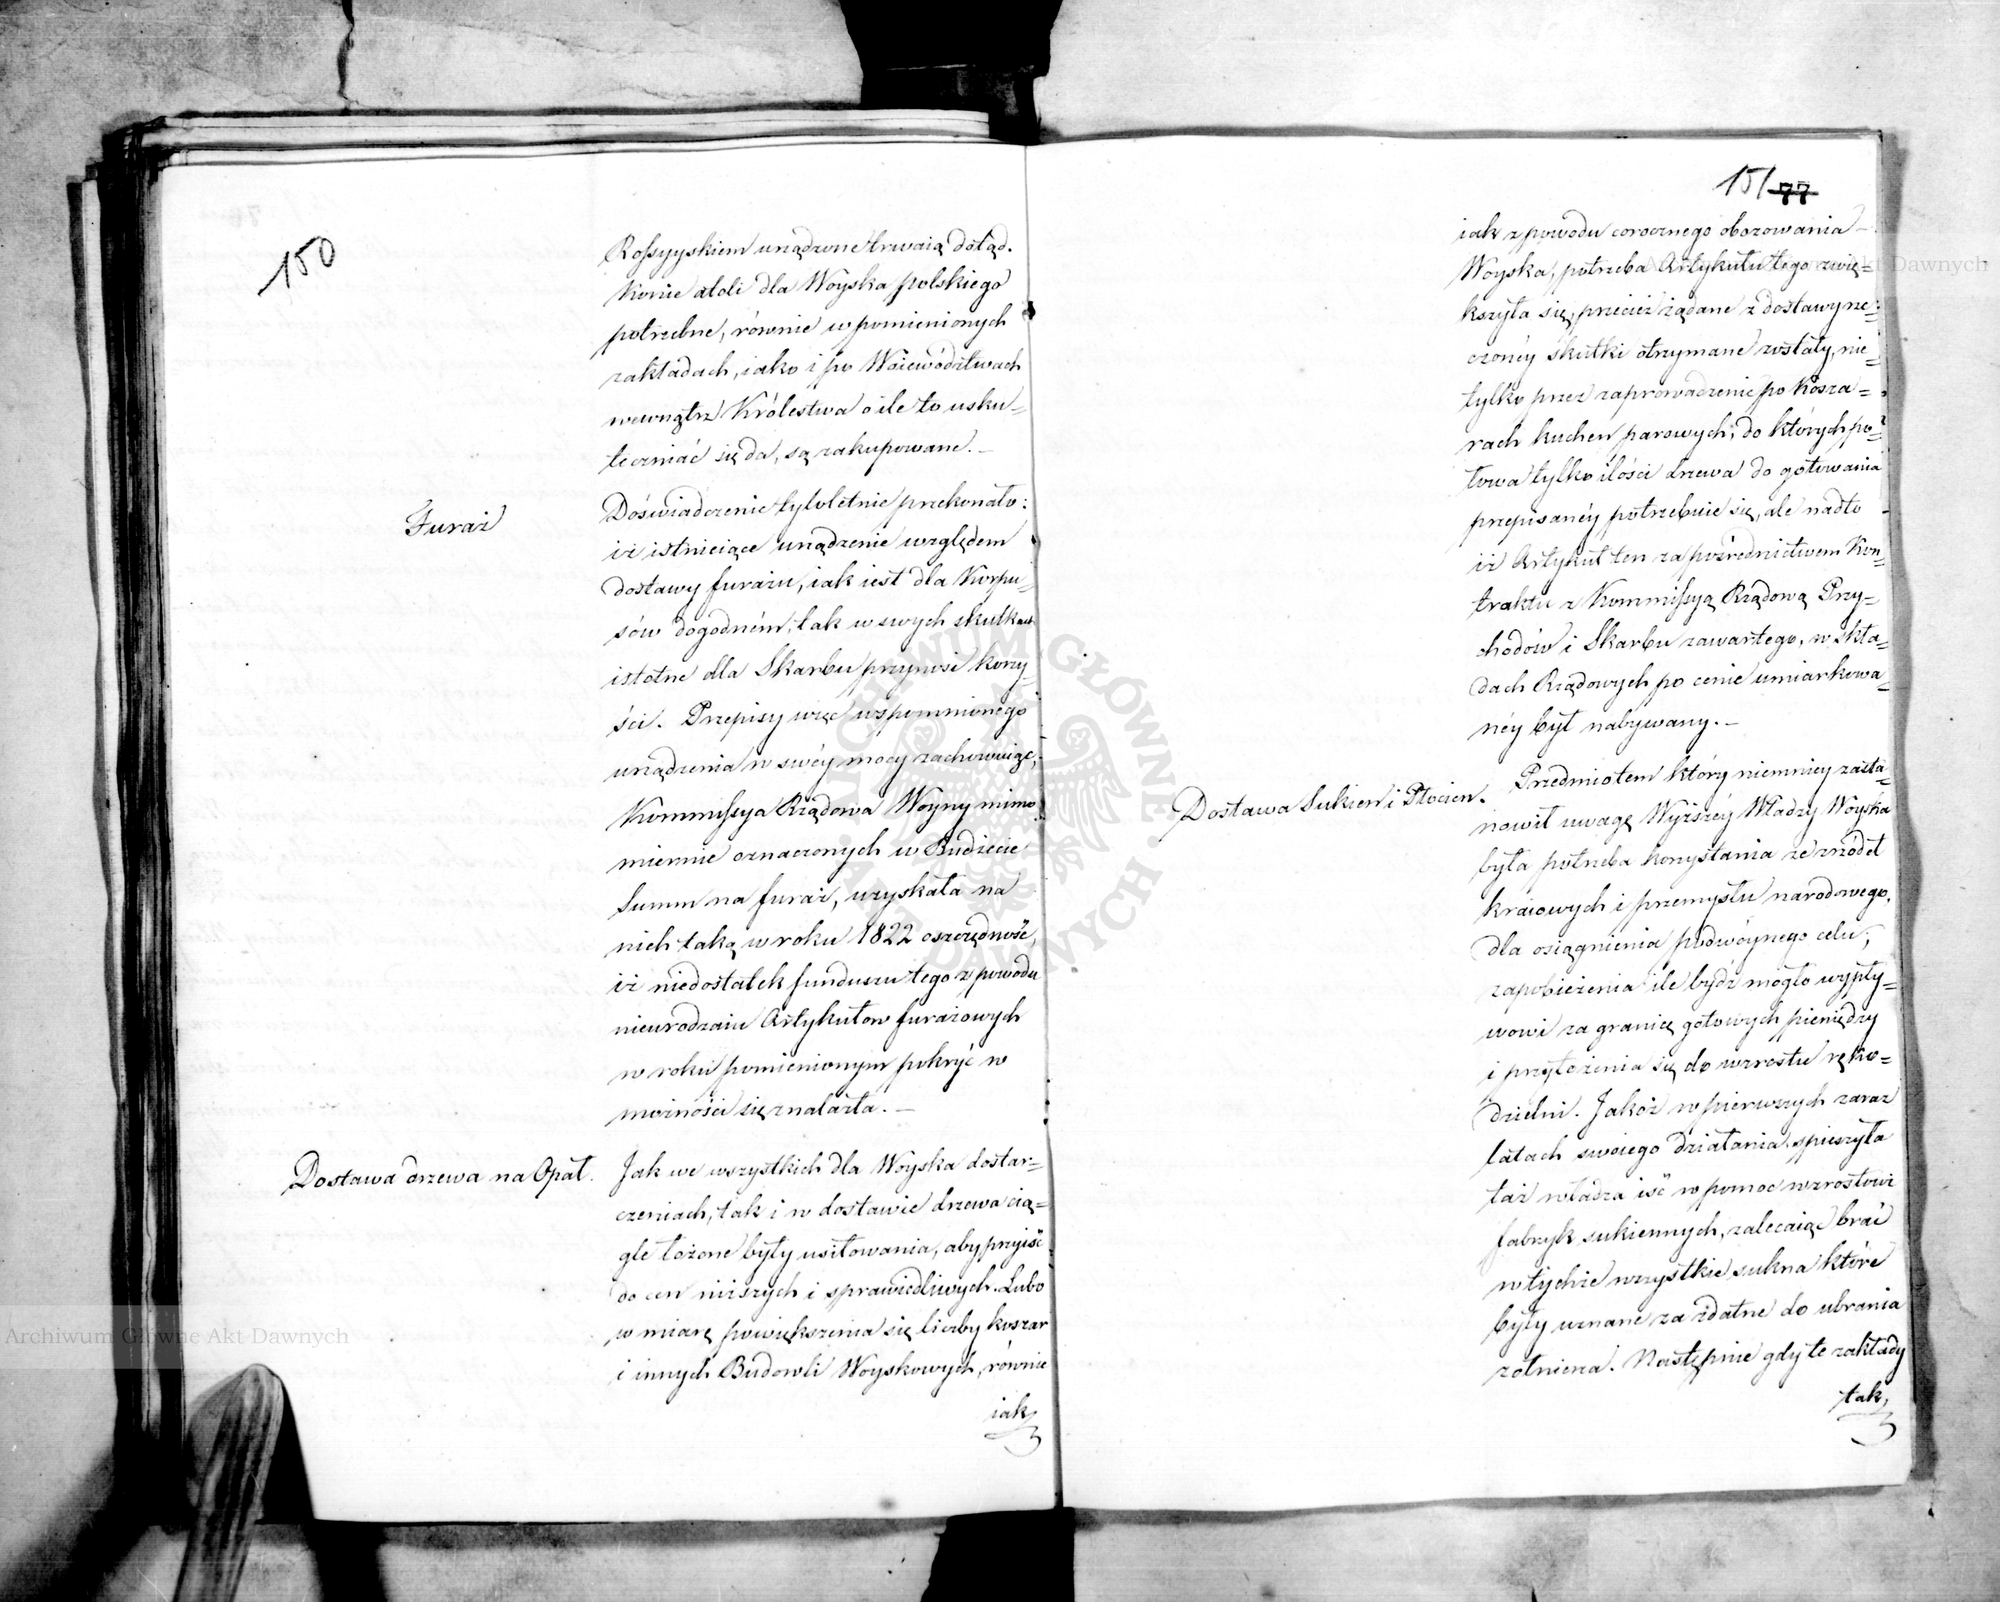 150
Rossyyskiem urządzone trwaią dotąd.
Konie atoli dla Woyska polskiego
potrzebne, równie w pomienionych
zakładach, iako i po Woiewództwach
wewnątrz Królestwa o ile to usku-
teczniać się da, są zakupowane. –
Furaż
Doświadczenie tyloletnie przekonało:
iż istnieiące urządzenie względem
dostawy furażu, iak iest dla Korpu-
sów dogodném, tak w swych skutkach
istotne dla Skarbu przynosi korzy-
ści. Przepisy więc wspomnionego
urządzenia w swéy mocy zachowuiąc,
Kommissya Rządowa Woyny mimo
miernie oznaczonych w Budżecie
Summ na furaż, uzyskała na
nich taką w roku 1822 oszczędność,
iż niedostatek funduszu tego z powodu
nieurodzaiu Artykułow furażowych
w roku pomienionym pokryć w
możności się znalazła. –
Dostawa drzewa na Opał.
Jak we wszystkich dla Woyska dostar-
czeniach, tak i w dostawie drzewa cią-
gle łożone były usiłowania, aby przyiść
do cen niższych i sprawiedliwych. Lubo
w miarę powiększenia się liczby koszar
i innych Budowli Woyskowych, równie
iak
151 77
iak z powodu corocznego obozowania –
Woyska, potrzeba Artykułu tego zwię-
kszyła się, przecież żądane z dostawy rze-
czonéy skutki otrzymane zostały, nie-
tylko przez zaprowadzenie po Kosza-
rach kuchen parowych, do których po-
łowa tylko ilości drzewa do gotowania
przepisanéy potrzebuie się, ale nadto
iż Artykuł ten za pośrednictwem Kon-
traktu z Kommissyą Rządową Przy-
chodów i Skarbu zawartego, w skła-
dach Rządowych po cenie umiarkowa-
néy był nabywany. –
Dostawa Sukien i Płocien.
Przedmiotem który niemniey zasta-
nowił uwagę Wyższéy Władzy Woyska
była potrzeba korzystania ze źródeł
kraiowych i przemysłu narodowego,
dla osiągnienia podwóynego celu;
zapobieżenia ile bydź mogło wypły-
wowi za granicę gotowych pieniędzy
i przyłożenia się do wzrostu ręko-
dzielni. Jakoż w pierwszych zaraz
latach swoiego działania spieszyła
taż władza iść w pomoc wzrostowi
fabryk sukiennych, zalecaiąc brać
w tychże wszystkie sukna które
były uznane za zdatne do ubrania
żołnierza. Następnie gdy te zakłady
tak
Archiwum Główne Akt Dawnych
Archiwum Główne Akt Dawnych
ARCHIWUM GŁÓWNE AKT DAWNYCH